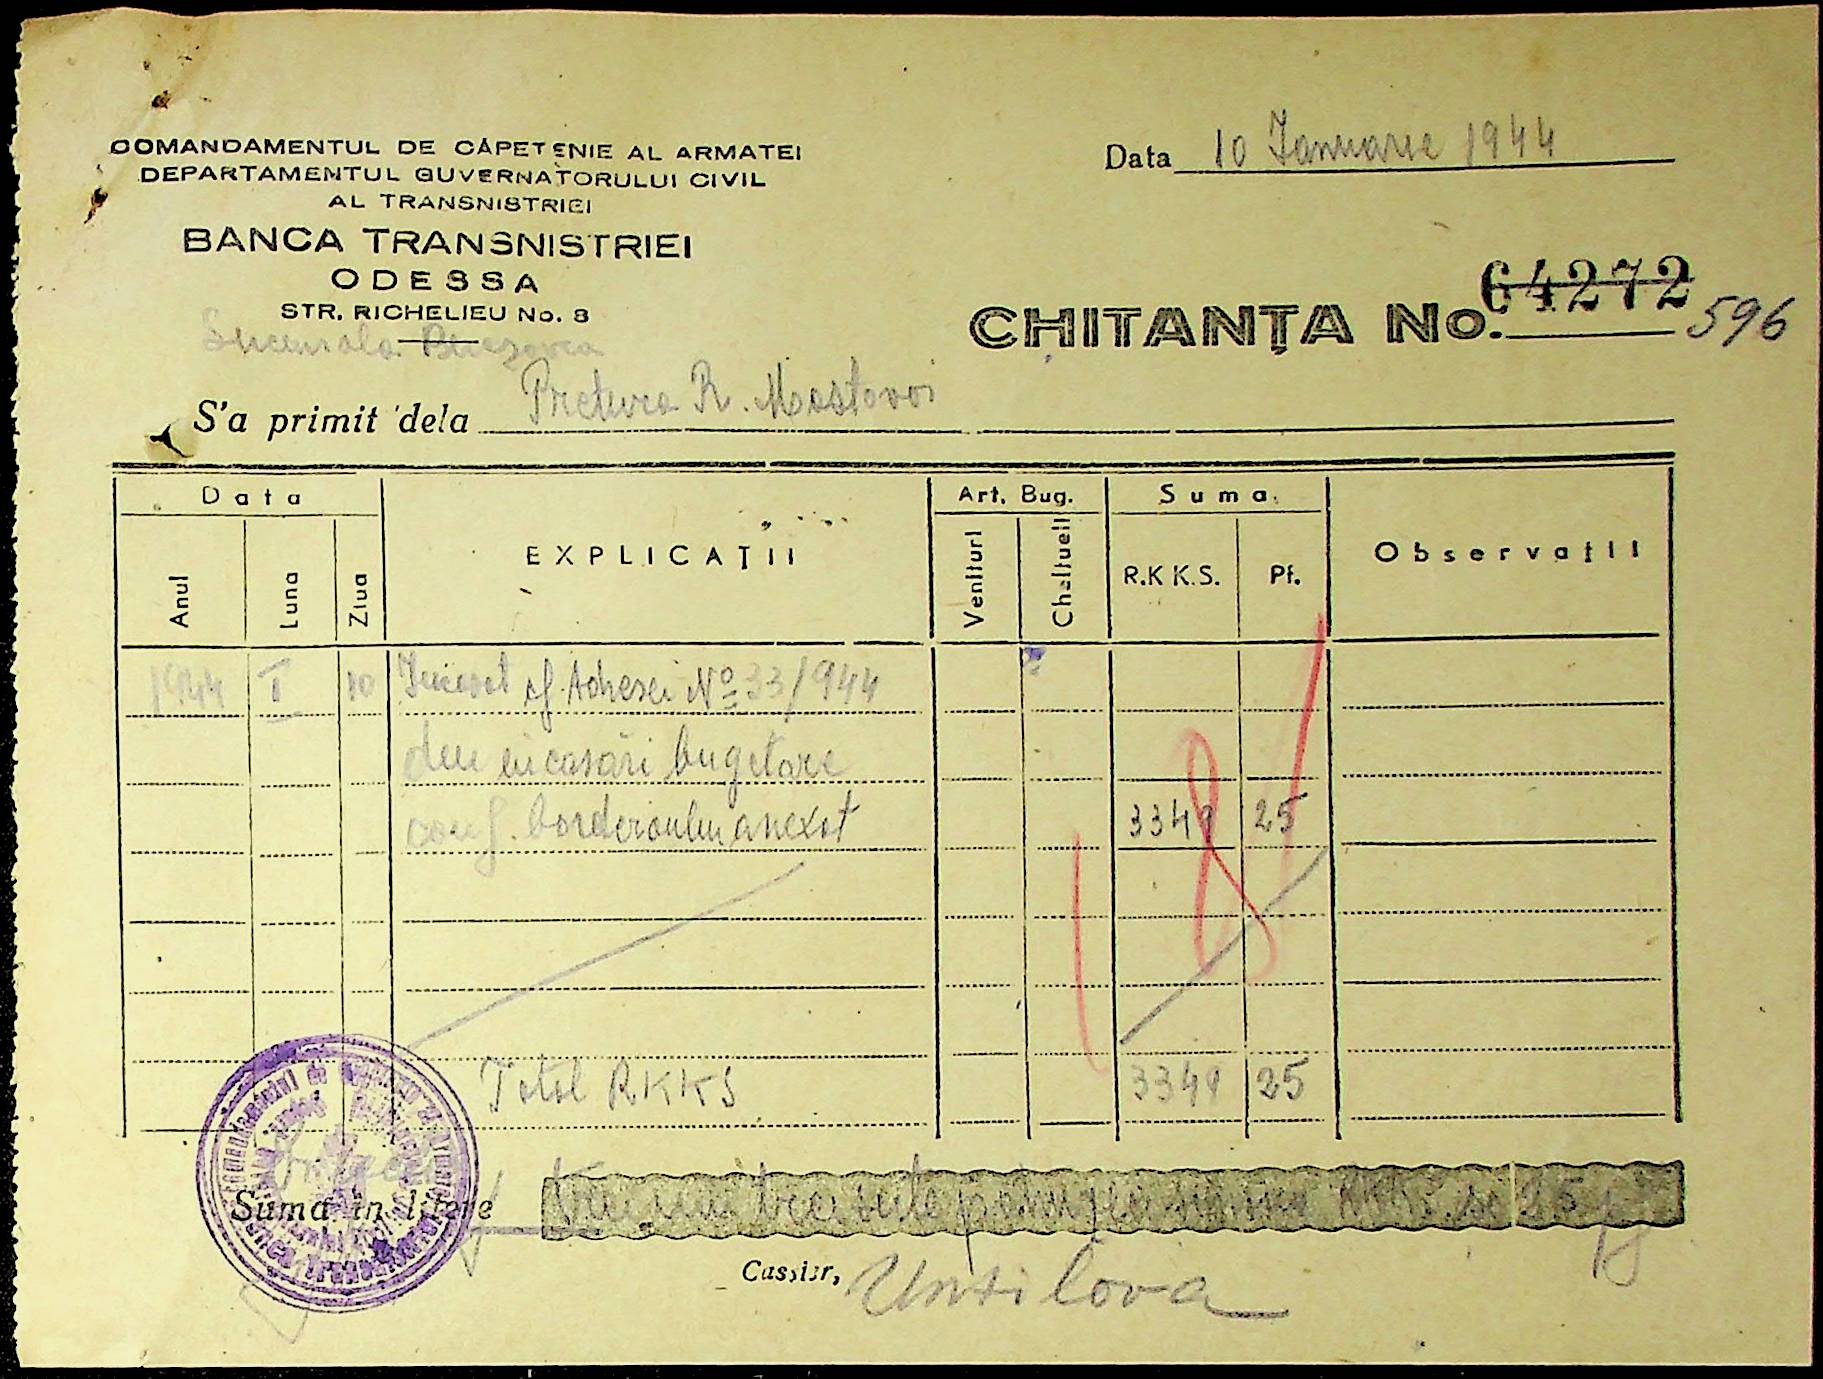 COMANDAMENTUL DE CĂPETENIE AL ARMATEI
DEPARTAMENTUL GUVERNATORULUI CIVIL
AL TRANSNISTRIEI
BANCA TRANSNISTRIEI
ODESSA
STR. RICHELIEU No. 8
Sucursala Berezovca
Data 10 Ianuarie 1944
CHITANȚA No. 64272 596
S'a primit dela Pretura R. Mostovoi
Data
Anul Luna Ziua
EXPLICAȚII
Art. Bug.
Venituri Cheltueli
Suma
R.K K.S. Pf.
Observații
1944 I 10 Incasat cf. Adresei No 33/944
din încasări bugetare
conf. borderoului anexat 3349 25
Total RKKS 3349 25
Suma în litere Trei mii trei sute patruzeci RKKS. și 25 pf
Cassier, Untilova